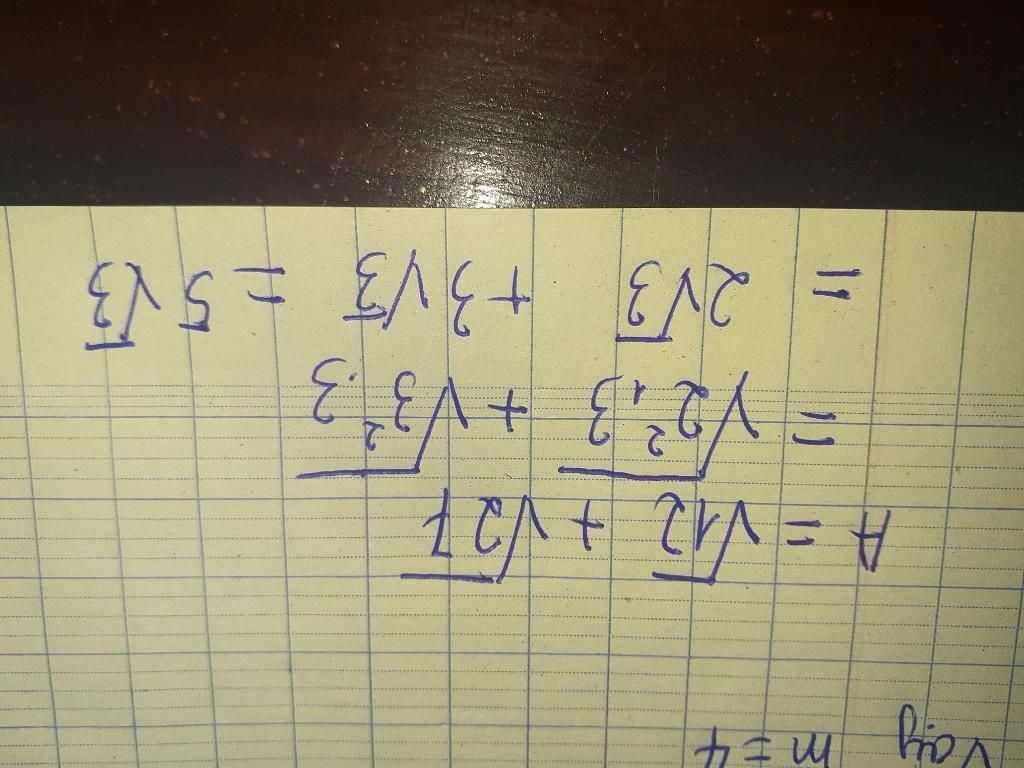 Vậy m = 4
A = √12 + √27
= √2².3 + √3².3
= 2√3 + 3√3 = 5√3